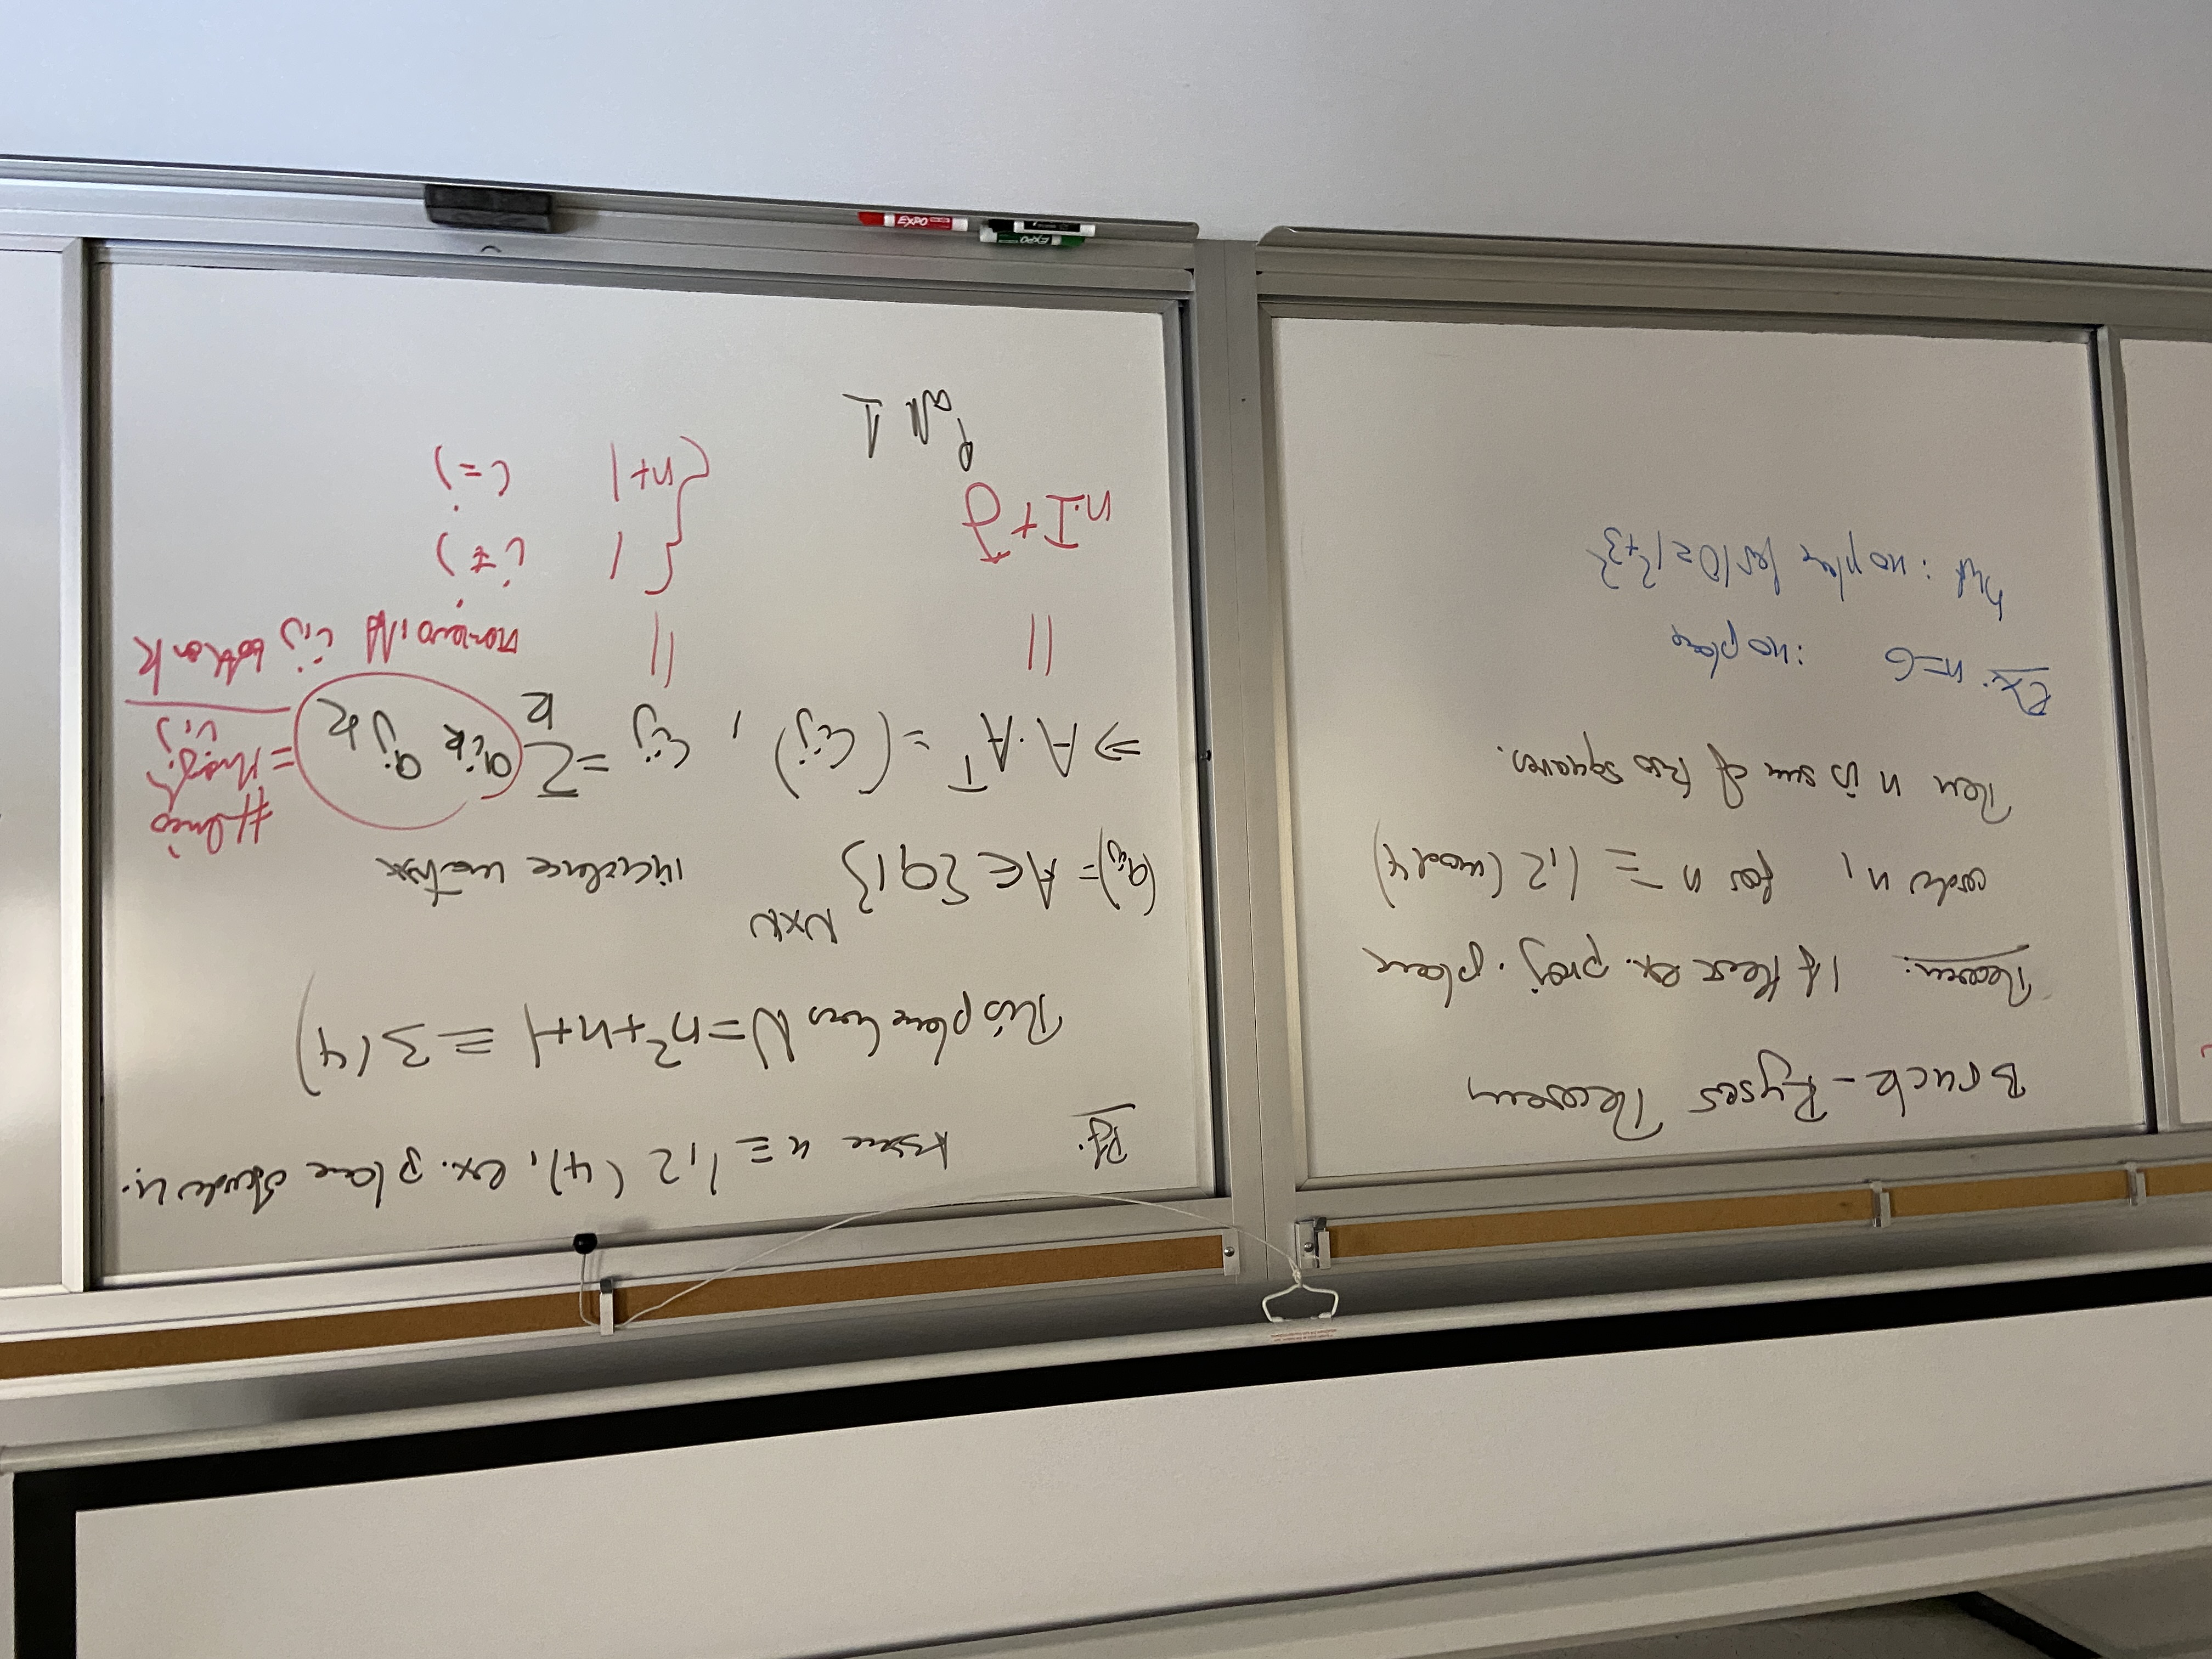 Bruck-Ryser Theorem
Theorem. If there ex. proj. plane
order n, for n ≡ 1,2 (mod 4)
Then n is sum of two squares.
Ex. n=6 : no plane
But : no plane for 10=1²+3²
Pf. Assume n ≡ 1,2 (4), ex. plane order n.
This plane has N=n²+n+1 ≡ 3(4)
(a_ij)=A∈{0,1}^{N×N} incidence matrix
⇒ A·Aᵀ = (c_ij), c_ij = Σ_k a_ik a_jk = # lines through i,j
nonzero iff i,j both on k
|| ||
n·I+J { 1 i≠j
{ n+1 i=j
all 1
EXPO
EXPO